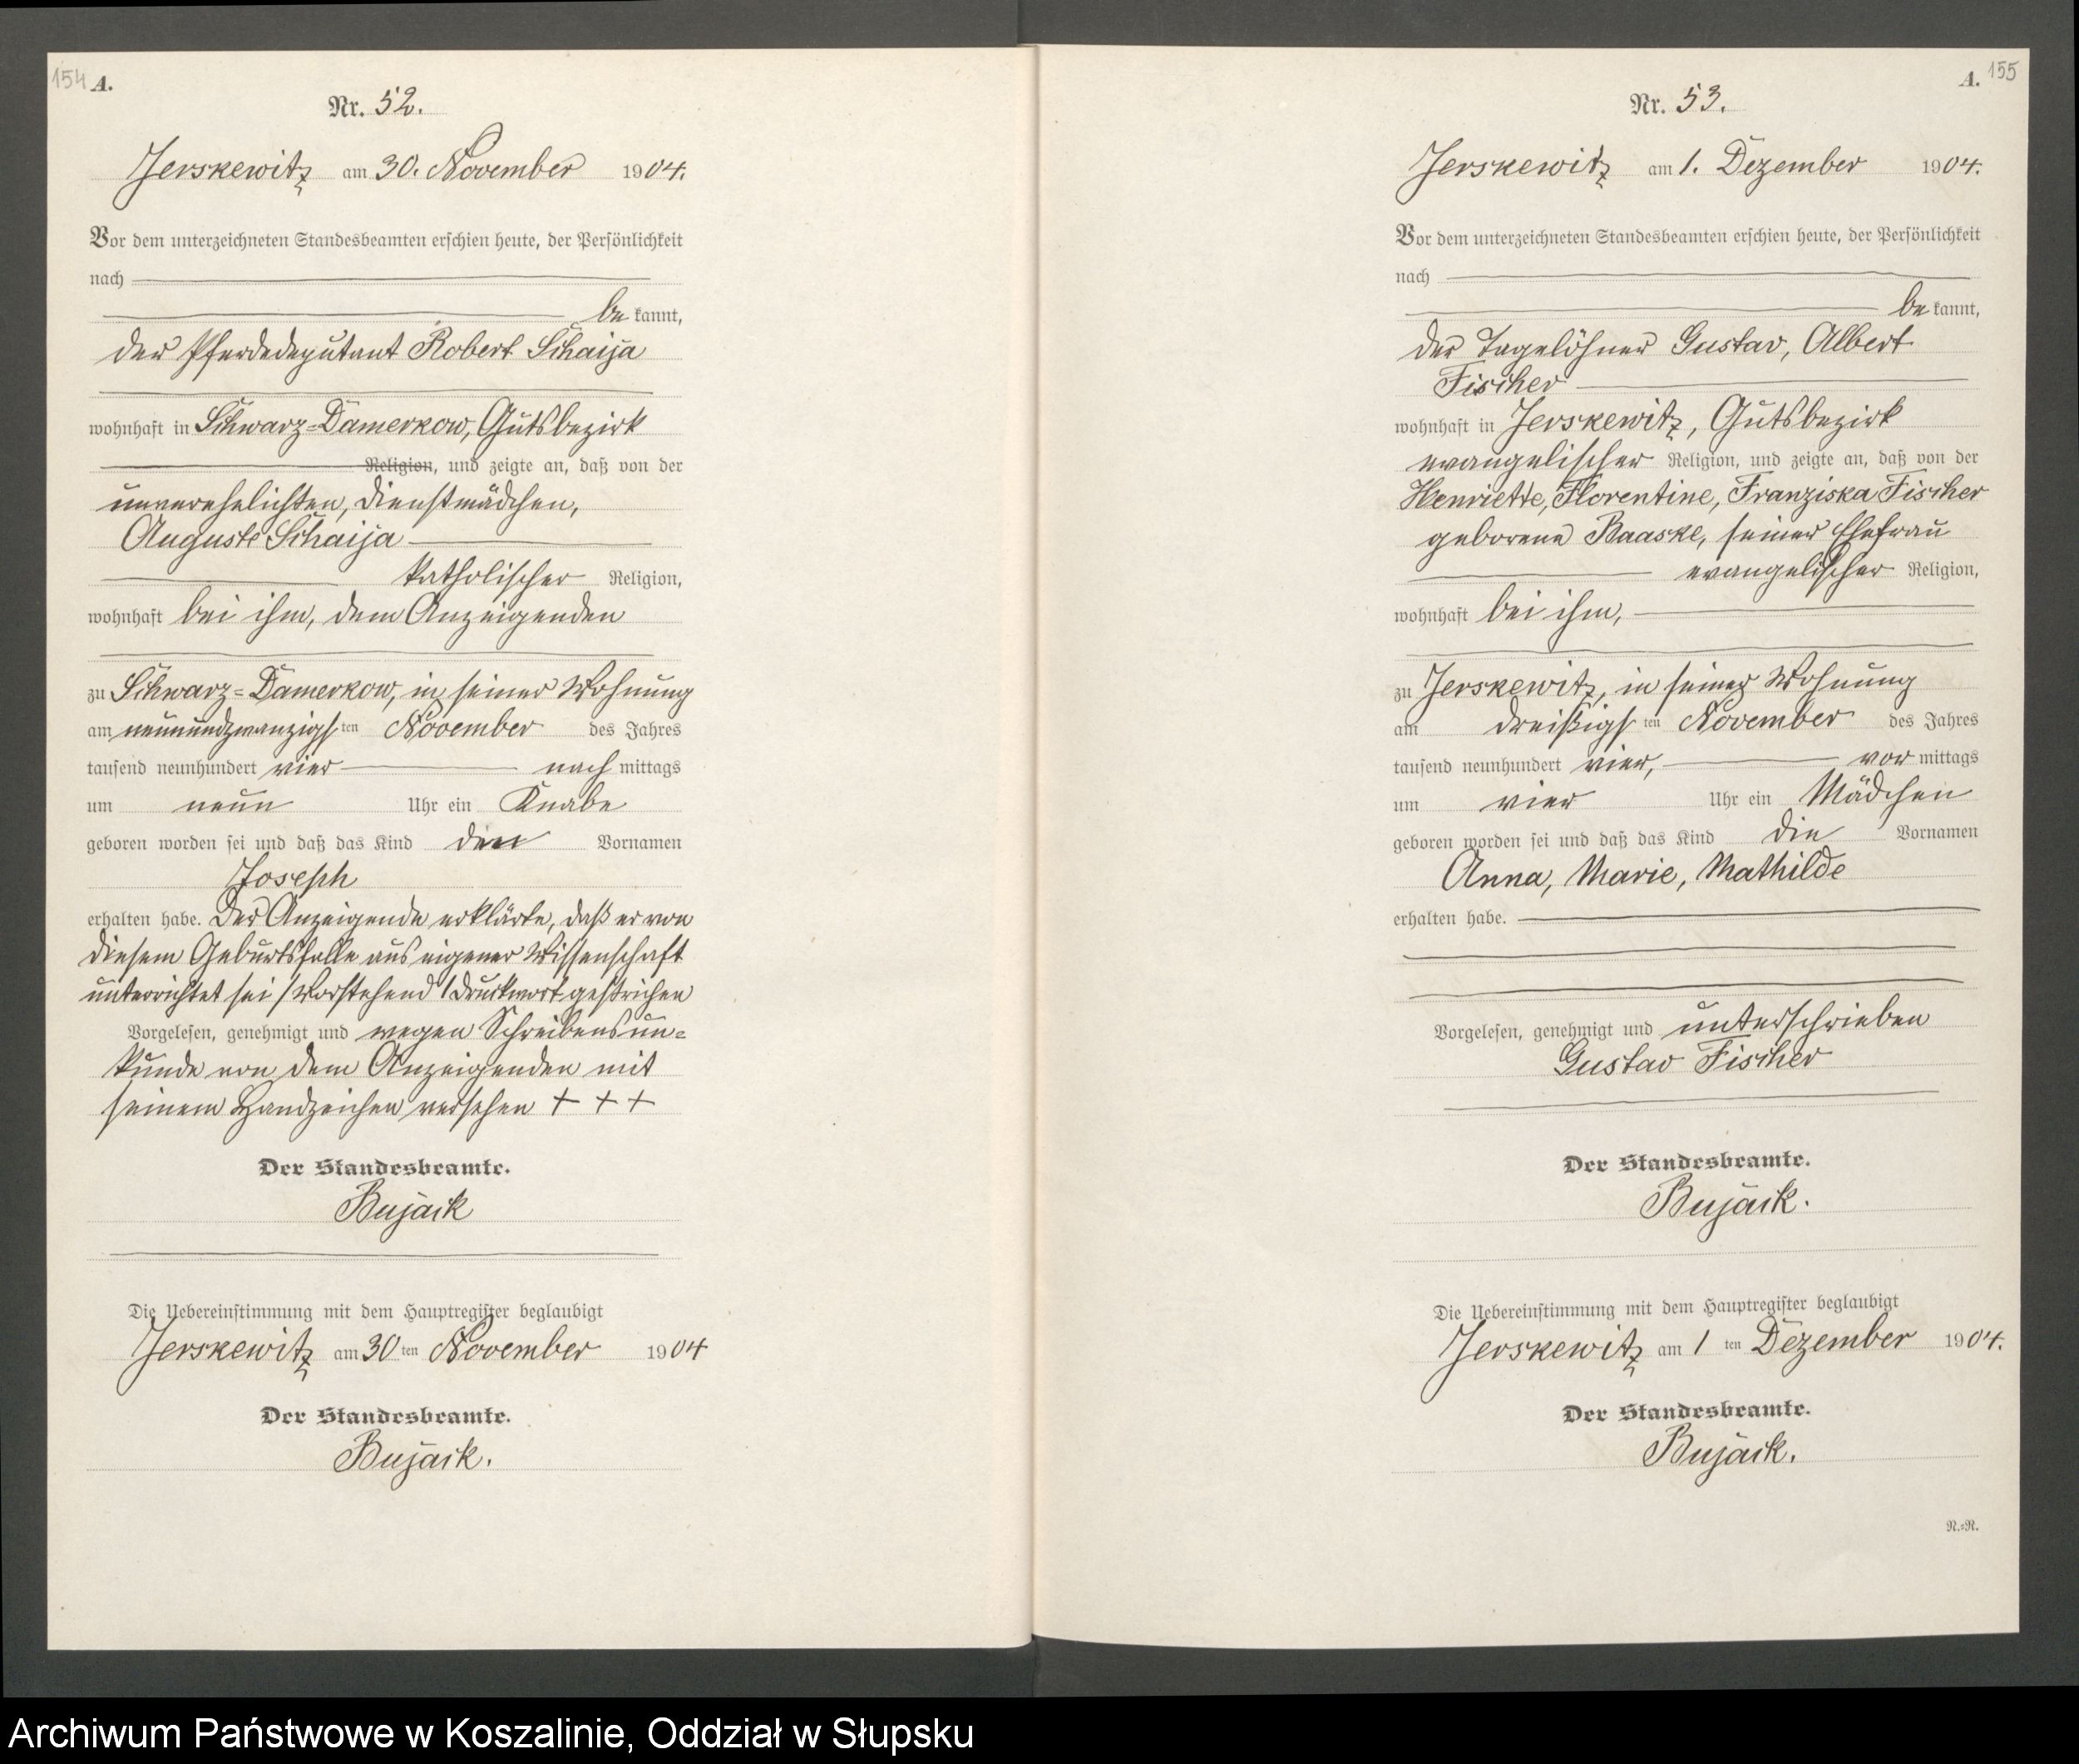 154 A.
Nr. 52.
Jerskewitz am 30. November 1904.
Vor dem unterzeichneten Standesbeamten erschien heute, der Persönlichkeit
nach
be kannt,
der Pferdedeputant Robert Schaija
wohnhaft in Schwarz=Damerkow, Gutsbezirk
Religion, und zeigte an, daß von der
unverehelichten, Dienstmädchen,
Auguste Schaija
katholischer Religion,
wohnhaft bei ihm, dem Anzeigenden
zu Schwarz=Damerkow, in seiner Wohnung
am neunundzwanzigsten November des Jahres
tausend neunhundert vier nach mittags
um neun Uhr ein Knabe
geboren worden sei und daß das Kind den Vornamen
Joseph
erhalten habe. Der Anzeigende erklärte, daß er von
diesem Geburtsfalle aus eigener Wissenschaft
unterrichtet sei / Vorstehend 1 Druckwort gestrichen
Vorgelesen, genehmigt und wegen Schreibensun=
kunde von dem Anzeigenden mit
seinem Handzeichen versehen + + +
Der Standesbeamte.
Bujack
Die Uebereinstimmung mit dem Hauptregister beglaubigt
Jerskewitz am 30 ten November 1904
Der Standesbeamte.
Bujack.
A. 155
Nr. 53.
Jerskewitz am 1. Dezember 1904.
Vor dem unterzeichneten Standesbeamten erschien heute, der Persönlichkeit
nach
be kannt,
der Tagelöhner Gustav, Albert
Fischer
wohnhaft in Jerskewitz, Gutsbezirk
evangelischer Religion, und zeigte an, daß von der
Henriette, Florentine, Franziska Fischer
geborene Baaske, seiner Ehefrau
evangelischer Religion,
wohnhaft bei ihm,
zu Jerskewitz, in seiner Wohnung
am dreißigsten November des Jahres
tausend neunhundert vier, vor mittags
um vier Uhr ein Mädchen
geboren worden sei und daß das Kind die Vornamen
Anna, Marie, Mathilde
erhalten habe.
Vorgelesen, genehmigt und unterschrieben
Gustav Fischer
Der Standesbeamte.
Bujack.
Die Uebereinstimmung mit dem Hauptregister beglaubigt
Jerskewitz am 1 ten Dezember 1904.
Der Standesbeamte.
Bujack.
N.=N.
Archiwum Państwowe w Koszalinie, Oddział w Słupsku